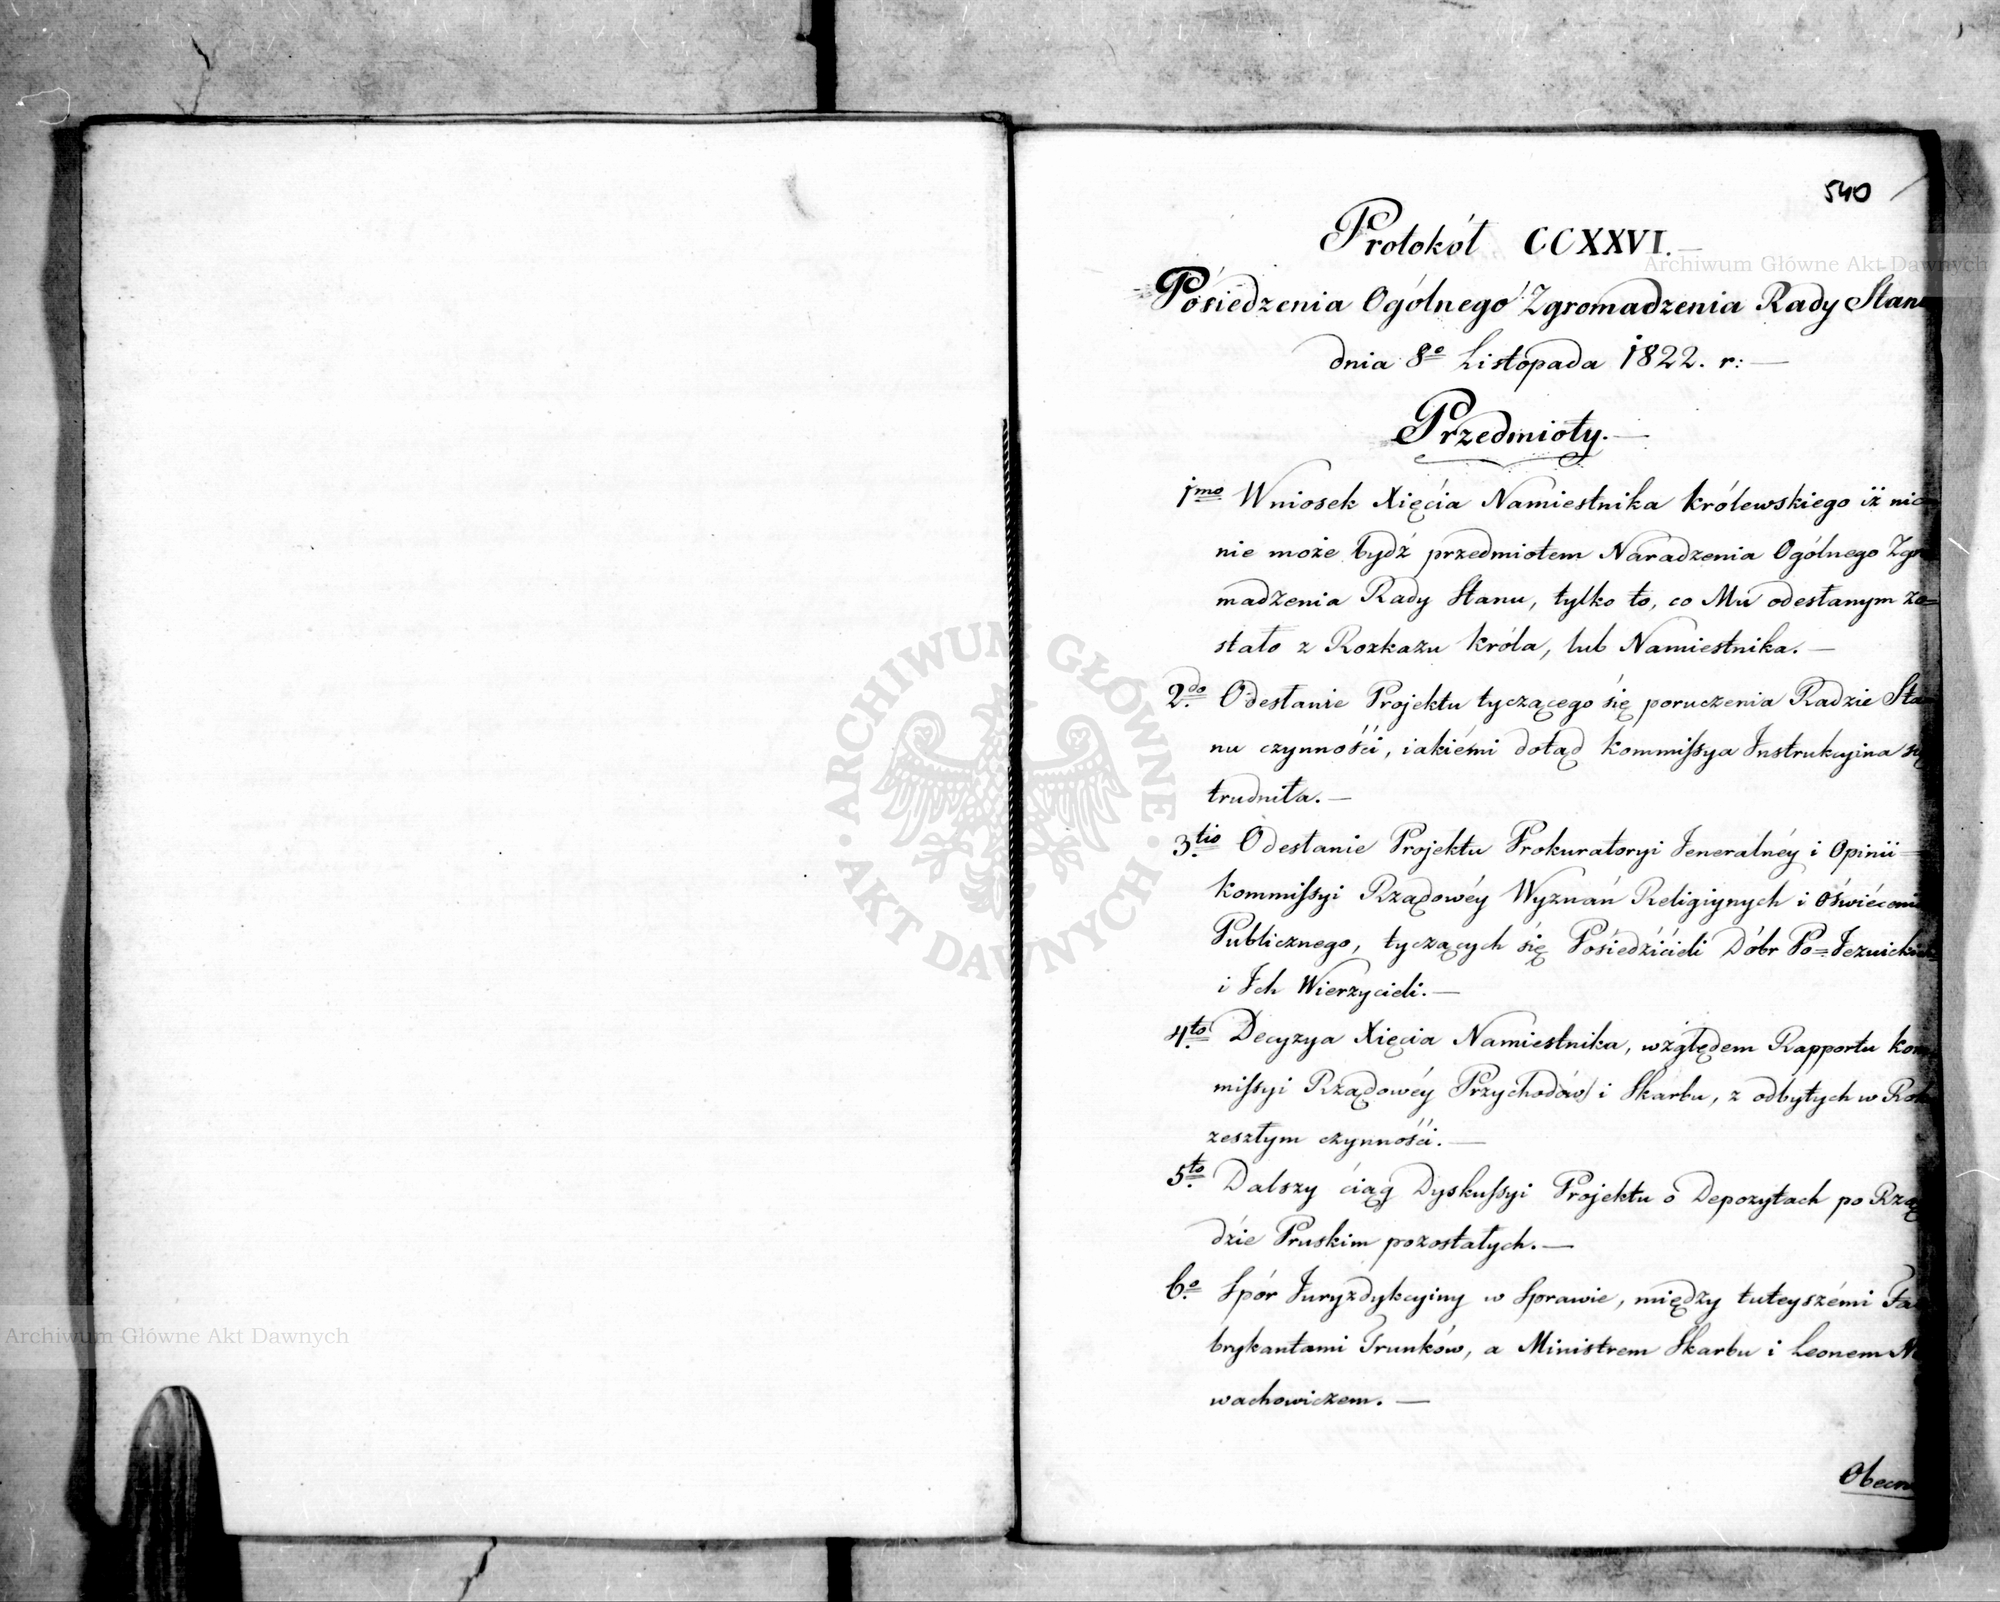 540
Protokół CCXXVI.—
Posiedzenia Ogólnego Zgromadzenia Rady Stanu
dnia 8º Listopada 1822. r: —
Przedmioty.—
1mo Wniosek Xięcia Namiestnika Królewskiego iż nic
nie może bydź przedmiotem Naradzenia Ogólnego Zgro
madzenia Rady Stanu, tylko to, co Mu odesłanym zo=
stało z Rozkazu Króla, lub Namiestnika.—
2do Odesłanie Projektu tyczącego się poruczenia Radzie Sta
nu czynności, iakiémi dotąd Kommissya Instrukcyina się
trudniła.—
3tio Odesłanie Projektu Prokuratoryi Jeneralnéy i Opinii
Kommissyi Rządowéy Wyznań Religiynych i Oświécenia
Publicznego, tyczących się Posiedzicieli Dóbr Po=Jezuickich
i Ich Wierzycieli.—
4to Decyzya Xięcia Namiestnika, względem Rapportu Kom
missyi Rządowéy Przychodów i Skarbu, z odbytych w Roku
zeszłym czynności.—
5to Dalszy ciąg Dyskussyi Projektu o Depozytach po Rzą
dzie Pruskim pozostałych.—
6º Spór Juryzdykcyiny w Sprawie, między tuteyszémi Fa
brykantami Trunków, a Ministrem Skarbu i Leonem Ne
wachowiczem.—
Obecni
Archiwum Główne Akt Dawnych
ARCHIWUM GŁÓWNE AKT DAWNYCH
Archiwum Główne Akt Dawnych